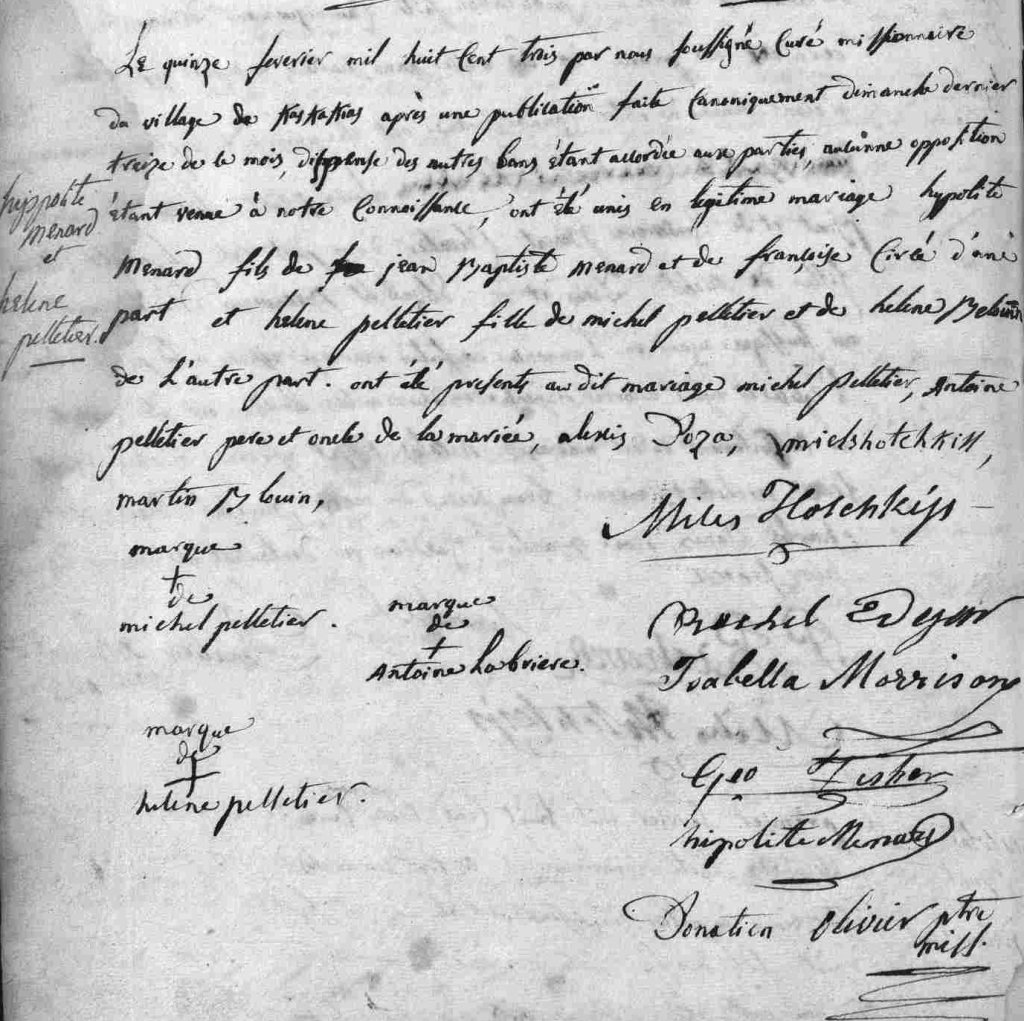 Le quinze feverier mil huit Cent trois par nous soussigné, Curé missionnaire
du village de Kaskaskias après une publication faite Canoniquement dimanche dernier
treize de le mois, dispense des autres bans étant accordée aux parties, opposition
étant venue à notre Connoissance, ont été unis en legitime mariage hypolite
menard fils de jean Baptiste menard et de françoise Cirée d'une
part et helene pelletier fille de michel pelletier et de helene
de L'autre part. ont été presents au dit mariage michel pelletier, Antoine
pelletier pere et oncle de la mariée, alexis Doza, mielshotchkiss,
martin Blouin,
hippolite
menard
et
helene
pelletier.
Miles Hotchkiss
marque
+
de
michel pelletier.
marque
de
+
Antoine Labriere.
Rachel Edgar
Isabella Morrison
marque
de
+
helene pelletier.
Geo Fisher
hipolitte Menard
Donatien Olivier ptre
miss.